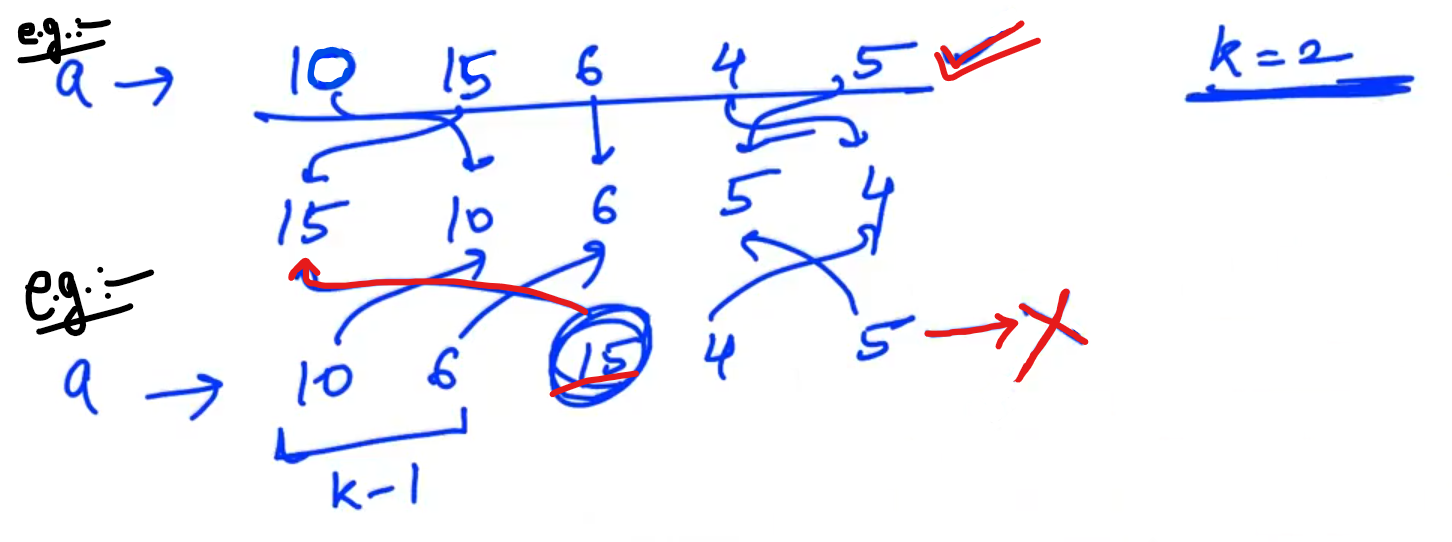 e.g.:-
a → 10 15 6 4 5 k = 2
15 10 6 5 4
e.g.:-
a → 10 6 15 4 5 → X
k-1